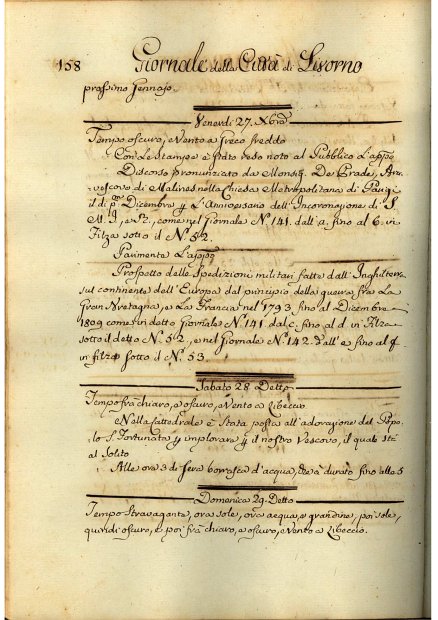 158 Giornale della Città di Livorno
prossimo Gennajo.
Venerdì 27. Xbre
Tempo oscuro, e Vento a Greco freddo
Con le stampe è stato reso noto al Pubblico L'appo
Discorso pronunziato da Monsig. De Prade, Arci
vescovo di Malines nella Chiesa Metropolitana di Parigi
il dì pmo Dicembre p L'Anniversario dell'Incoronazione di S.
M. I., e Ra., come nel Giornale No. 141. dall'a. fino al 6. in
Filza sotto il No. 52.
Parimente L'appo
Prospetto delle Spedizioni militari fatte dall'Inghilterra
sul continente dell'Europa dal principio della guerra fra La
Gran Bretagna, e La Francia nel 1793 fino al Dicembre
1809 come in detto Giornale No. 141 dal c. fino al d. in Filza
sotto il detto No. 52., e nel Giornale No. 142. dall'e fino al f
in filza sotto il No. 53.
Sabato 28 Detto
Tempo frà chiaro, e oscuro, e Vento a Libeccio
Nella Cattedrale è Stata posta all'adorazione del Popo
lo S. Fortunata p implorare p il nostro Vescovo, il quale stà
al Solito
Alle ore 3 di sera borrasca d'acqua, che à durato fino alle 5
Domenica 29. Detto
Tempo Stravagante, ora sole, ora acqua, e grandine, poi sole,
quindi oscuro, e poi frà chiaro, e oscuro, e Vento a Libeccio.